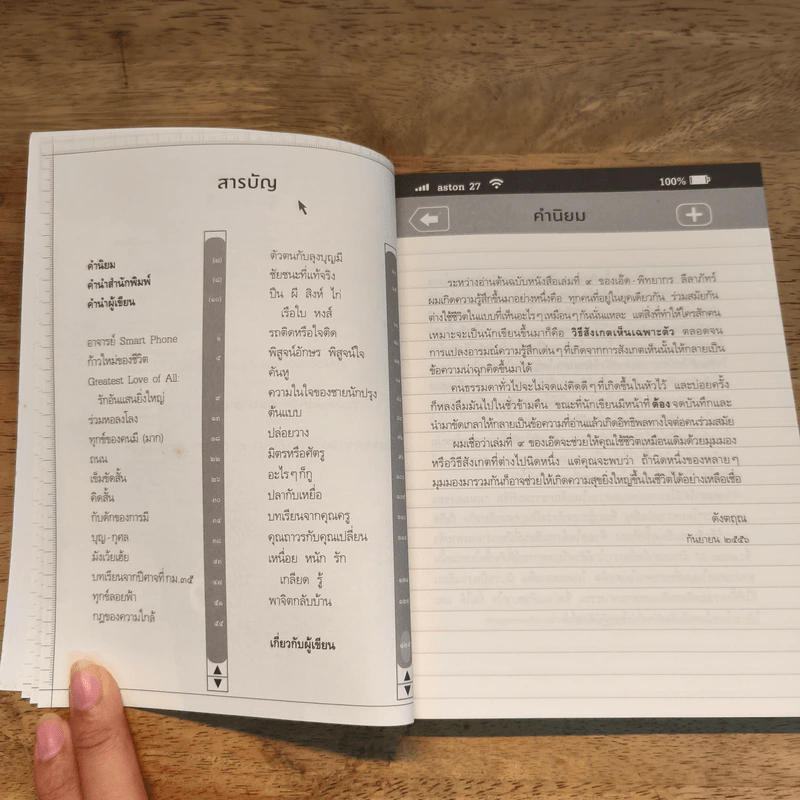 สารบัญ
คำนิยม
คำนำสำนักพิมพ์
คำนำผู้เขียน
อาจารย์ Smart Phone
ก้าวใหม่ของชีวิต
Greatest Love of All:
รักอันแสนยิ่งใหญ่
ร่วมหอลงโลง
ทุกข์ของคนมี (มาก)
ถนน
เข็มขัดสั้น
คิดสั้น
กับดักของการมี
บุญ-กุศล
มังเว้ยเฮ้ย
บทเรียนจากปีศาจที่ กม.๓๕
ทุกข์ลอยฟ้า
กฎของความใกล้
(๗)
(๘)
(๑๐)
๑
๕
๙
๑๓
๑๘
๒๒
๒๖
๓๐
๓๕
๓๘
๔๓
๔๗
๕๑
๕๕
ตัวตนกับลุงบุญมี
ชัยชนะที่แท้จริง
ปืน ผี สิงห์ ไก่
เรือใบ หงส์
รถติดหรือใจติด
พิสูจน์อักษร พิสูจน์ใจ
คันหู
ความในใจของชายนักปรุง
ต้นแบบ
ปล่อยวาง
มิตรหรือศัตรู
อะไรๆ ก็กู
ปลากับเหยื่อ
บทเรียนจากคุณครู
คุณถาวรกับคุณเปลี่ยน
เหนื่อย หนัก รัก
เกลียด รู้
พาจิตกลับบ้าน
เกี่ยวกับผู้เขียน
aston 27
100%
คำนิยม
ระหว่างอ่านต้นฉบับหนังสือเล่มที่ ๙ ของเอ๊ด-พิทยากร ลีลาภัทร์
ผมเกิดความรู้สึกขึ้นมาอย่างหนึ่งคือ ทุกคนที่อยู่ในยุคเดียวกัน ร่วมสมัยกัน
ต่างใช้ชีวิตในแบบที่เห็นอะไรๆ เหมือนๆ กันนั่นแหละ แต่สิ่งที่ทำให้ใครสักคน
เหมาะจะเป็นนักเขียนขึ้นมาก็คือ วิธีสังเกตเห็นเฉพาะตัว ตลอดจน
การแปลงอารมณ์ความรู้สึกเด่นๆ ที่เกิดจากการสังเกตเห็นนั้นให้กลายเป็น
ข้อความน่าฉุกคิดขึ้นมาได้
คนธรรมดาทั่วไปจะไม่จดแง่คิดดีๆ ที่เกิดขึ้นในหัวไว้ และบ่อยครั้ง
ก็หลงลืมมันไปในชั่วข้ามคืน ขณะที่นักเขียนมีหน้าที่ ต้อง จดบันทึกและ
นำมาขัดเกลาให้กลายเป็นข้อความที่อ่านแล้วเกิดอิทธิพลทางใจต่อคนร่วมสมัย
ผมเชื่อว่าเล่มที่ ๙ ของเอ๊ดจะช่วยให้คุณใช้ชีวิตเหมือนเดิมด้วยมุมมอง
หรือวิธีสังเกตที่ต่างไปนิดหนึ่ง แต่คุณจะพบว่า ถ้านิดหนึ่งของหลายๆ
มุมมองมารวมกันก็อาจช่วยให้เกิดความสุขยิ่งใหญ่ขึ้นในชีวิตได้อย่างเหลือเชื่อ
ดังตฤณ
กันยายน ๒๕๕๖